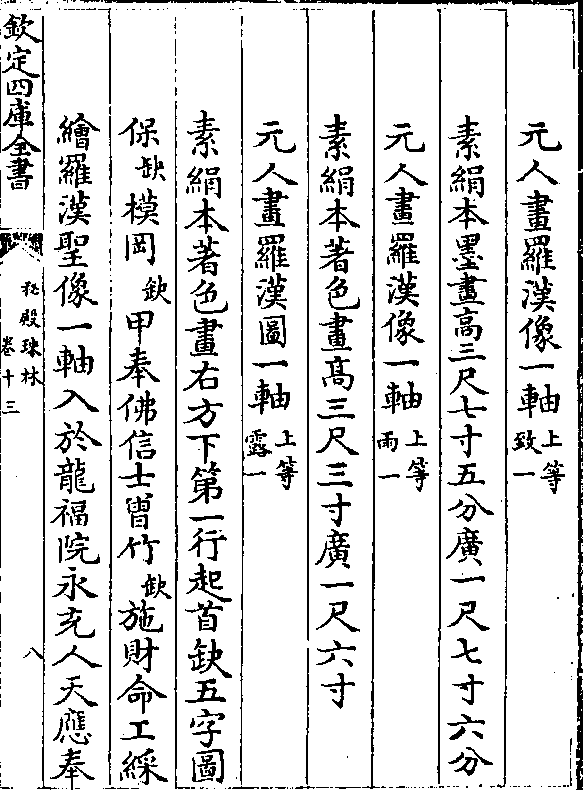 元人畫羅漢像一軸上等致一
素絹本墨畫高三尺七寸五分廣一尺七寸六分
元人畫羅漢像一軸上等雨一
素絹本著色畫高三尺三寸廣一尺六寸
元人畫羅漢圖一軸上等露一
素絹本著色畫右方下第一行起首缺五字圖
保缺模岡缺甲奉佛信士曽竹缺施財命工綵
繪羅漢聖像一軸入於龍福院永充人天應奉
欽定四庫全書
秘殿珠林
卷十三
八